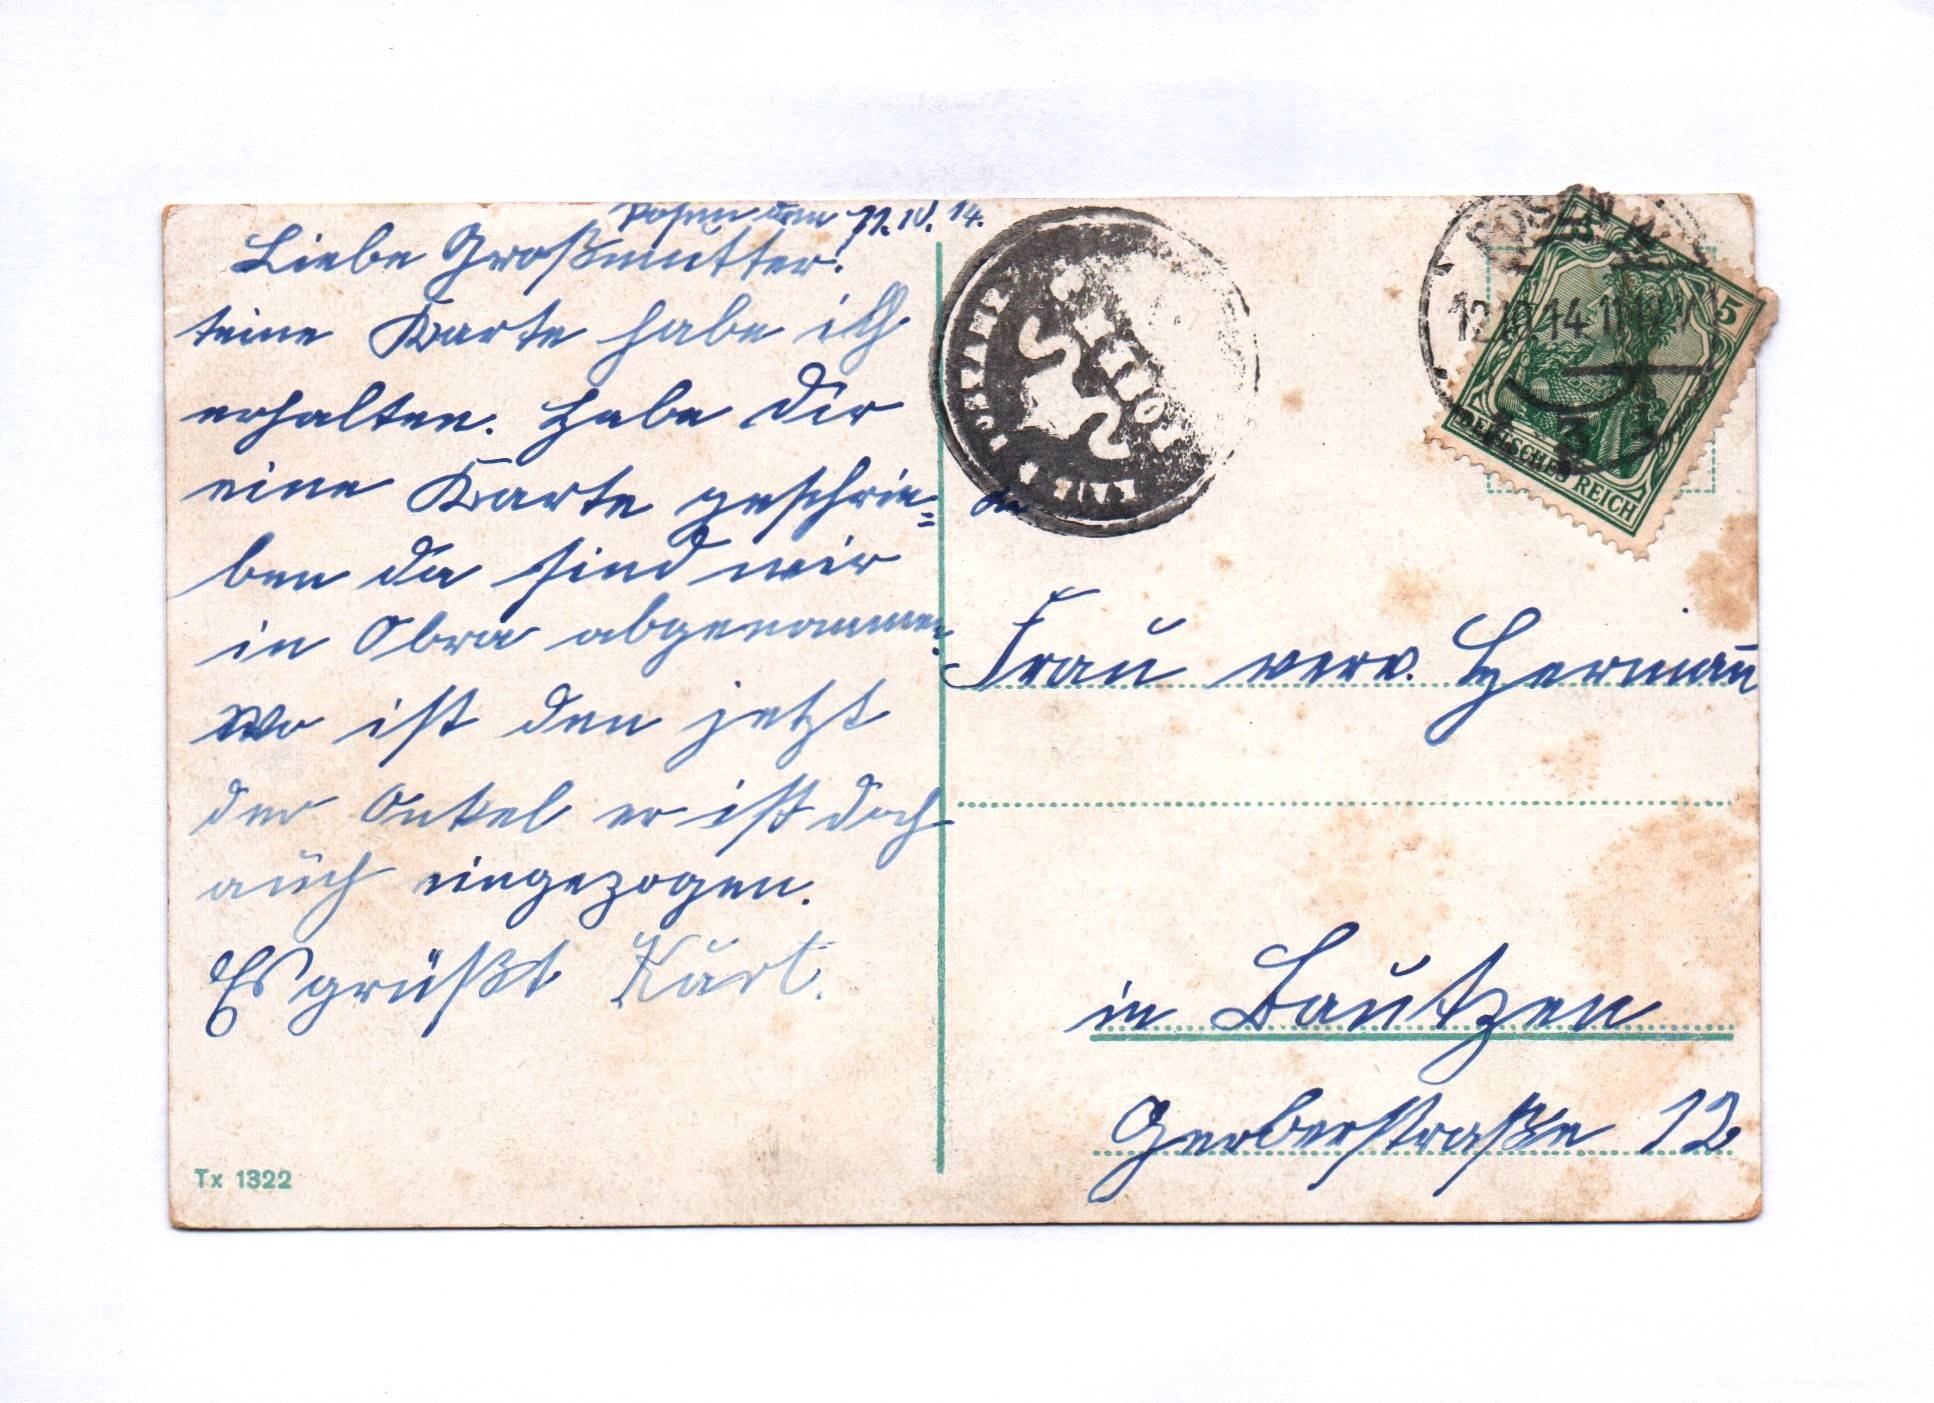 Posen den 11. IV. 14.
Liebe Großmutter!
teine Karte habe ich
erhalten. Habe Dir
eine Karte geschrie=
ben da sind wir
in Obra abgenommen.
Wo ist den jetzt
der Onkel er ist doch
auch eingezogen.
Es grüßt Kurt.
Tx 1322
POSEN
12 14 11
5
DEUTSCHES REICH
Frau verw. Herman̄
in Bautzen
Gerberstraße 12